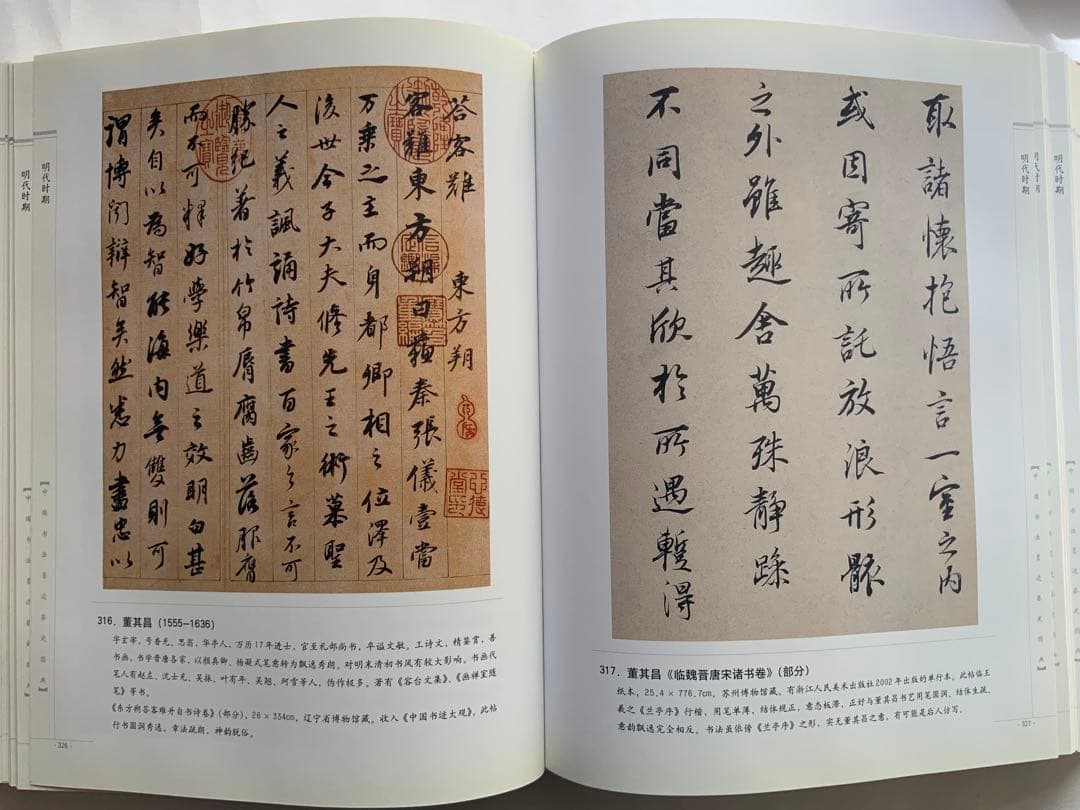 答客難 東方朔
客難東方朔曰蘇秦張儀壹當
万乘之主而身都卿相之位澤及
後世今子大夫修先王之術慕聖
人之義諷誦詩書百家之言不可
勝紀著於竹帛脣腐齒落服膺
而不可釋好學樂道之效明白甚
矣自以為智能海内無雙則可
謂博聞辯智矣然悉力盡忠以
316．董其昌（1555—1636）
字玄宰，号香光、思翁，华亭人，万历17年进士，官至礼部尚书，卒谥文敏。工诗文，精鉴赏，善
书画，书学晋唐各家，以颜真卿、杨凝式笔意转为飘逸秀朗。对明末清初书风有较大影响。书画代
笔人有赵左、沈士充、吴振、叶有年、吴翘、珂雪等人，伪作极多。著有《容台文集》、《画禅室随
笔》等书。
《东方朔答客难并自书诗卷》（部分），26×334cm，辽宁省博物馆藏，收入《中国书迹大观》。此帖
行书圆润秀逸，章法疏朗，神韵脱俗。
明代时期
明代时期
·326·
取諸懷抱悟言一室之内
或因寄所託放浪形骸
之外雖趣舍萬殊靜躁
不同當其欣於所遇蹔得
317．董其昌《临魏晋唐宋诸书卷》（部分）
纸本，25.4×776.7cm，苏州博物馆藏。有浙江人民美术出版社2002年出版的单行本。此帖临王
羲之《兰亭序》行楷，用笔单薄，结体规正，意态板滞，正好与董其昌书艺用笔圆润、结体生疏、
意韵飘逸完全相反。书法虽依傍《兰亭序》之形，实无董其昌之意，有可能是后人仿写。
明代时期
明代时期
·327·